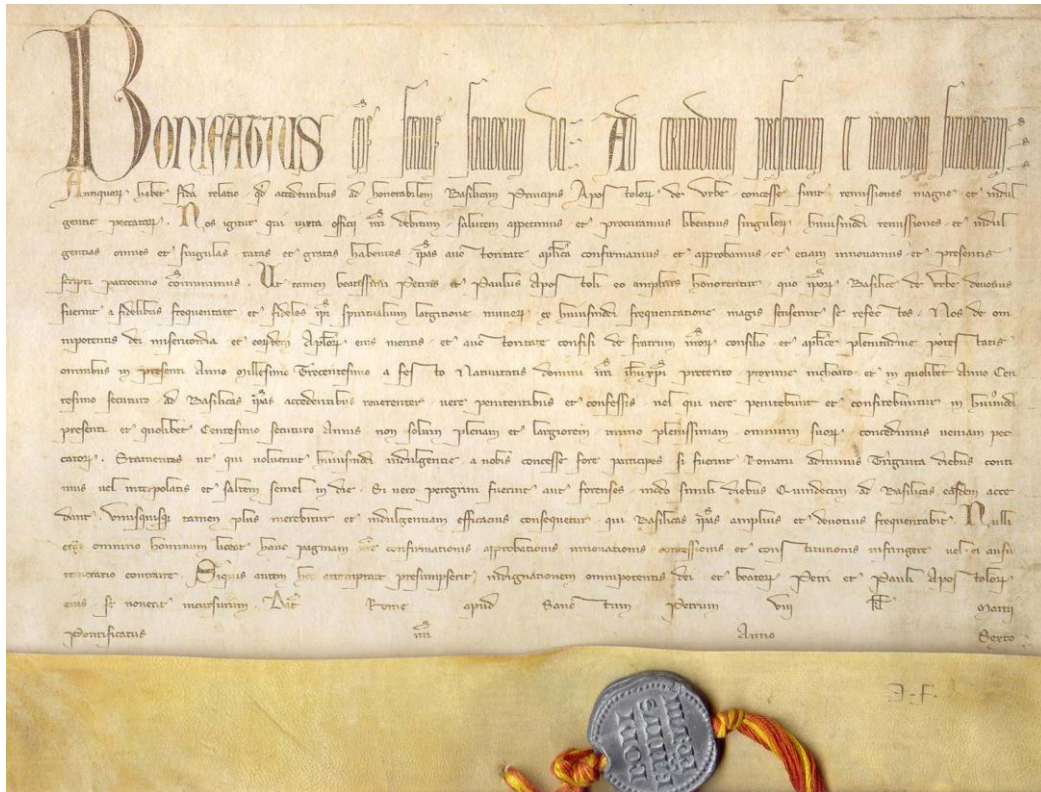 Bonifatius eps servus servorum dei Ad certitudinem presentium et memoriam futurorum
Antiquorum habet fida relatio qd accedentibus ad honorabilem Basilicam Principis Apostolorum de Urbe concesse sunt remissiones magne et indul
gentie peccatorum. Nos igitur qui iuxta officii nri debitum salutem appetimus et procuramus libentius singulorum huiusmodi remissiones et indul
gentias omnes et singulas ratas et gratas habentes ipsas auctoritate aplica confirmamus et approbamus et etiam innovamus et presentis
scripti patrocinio communimus. Ut tamen beatissimi Petrus et Paulus Apostoli eo amplius honorentur quo ipsorum Basilice de Urbe devotius
fuerint a fidelibus frequentate et fideles ipsi spiritualium largitione munerum ex huiusmodi frequentatione magis senserint se refectos. Nos de om
nipotentis dei misericordia et eorundem Aplorum eius meritis et auctoritate confisi de fratrum nrorum consilio et aplice plenitudine potestatis
omnibus in presenti Anno Millesimo Trecentesimo a festo Nativitatis domini nri ihuxpi preterito proxime inchoato et in quolibet Anno Cen
tesimo secuturo ad Basilicas ipsas accedentibus reverenter vere penitentibus et confessis vel qui vere penitebunt et confitebuntur in huiusmodi
presenti et quolibet Centesimo secuturo Annis non solum plenam et largiorem immo plenissimam omnium suorum concedimus veniam pec
catorum. Statuentes ut qui voluerint huiusmodi indulgentie a nobis concesse fore participes si fuerint Romani adminus Triginta diebus conti
nuis vel interpolatis et saltem semel in die. Si vero peregrini fuerint aut forenses modo simili diebus Quindecim ad Basilicas easdem acce
dant. Unusquisque tamen plus merebitur et indulgentiam efficacius consequetur qui Basilicas ipsas amplius et devotius frequentabit. Nulli
ergo omnino hominum liceat hanc paginam nre confirmationis approbationis innovationis concessionis et constitutionis infringere vel ei ausu
temerario contraire. Siquis autem hoc attemptare presumpserit indignationem omnipotentis dei et beatorum Petri et Pauli Apostolorum
eius se noverit incursurum. Dat Rome apud Sanctum Petrum viii kl Martii
Pontificatus nri Anno Sexto